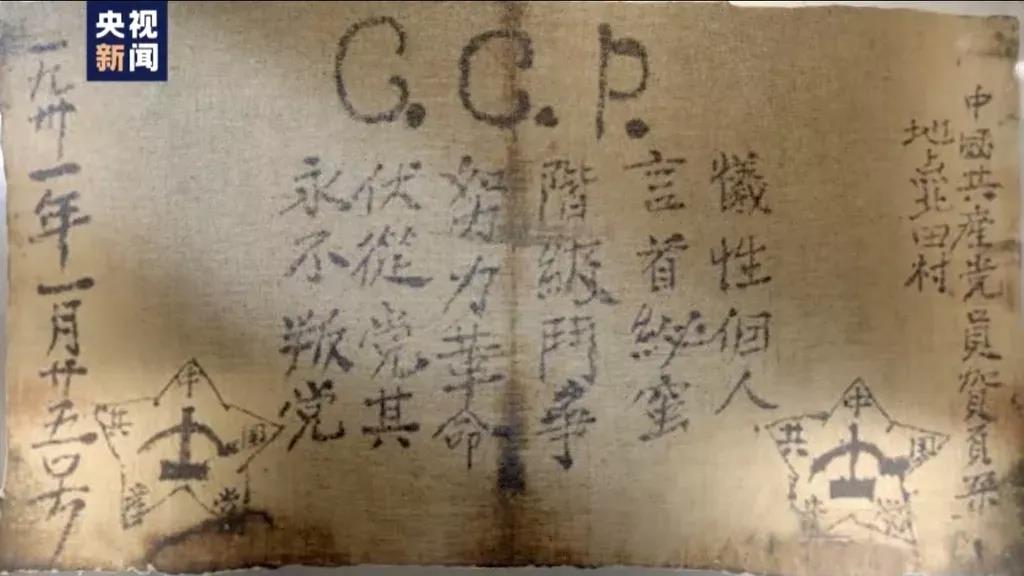 央视
新闻
C.C.P.
中國共產党員賀頁
地点北田村
犠性個人
言首蜜
階級鬥争
努力革命
伏從党其
永不叛党
一九卅一年一月廿五
中国共産党
中国共産党